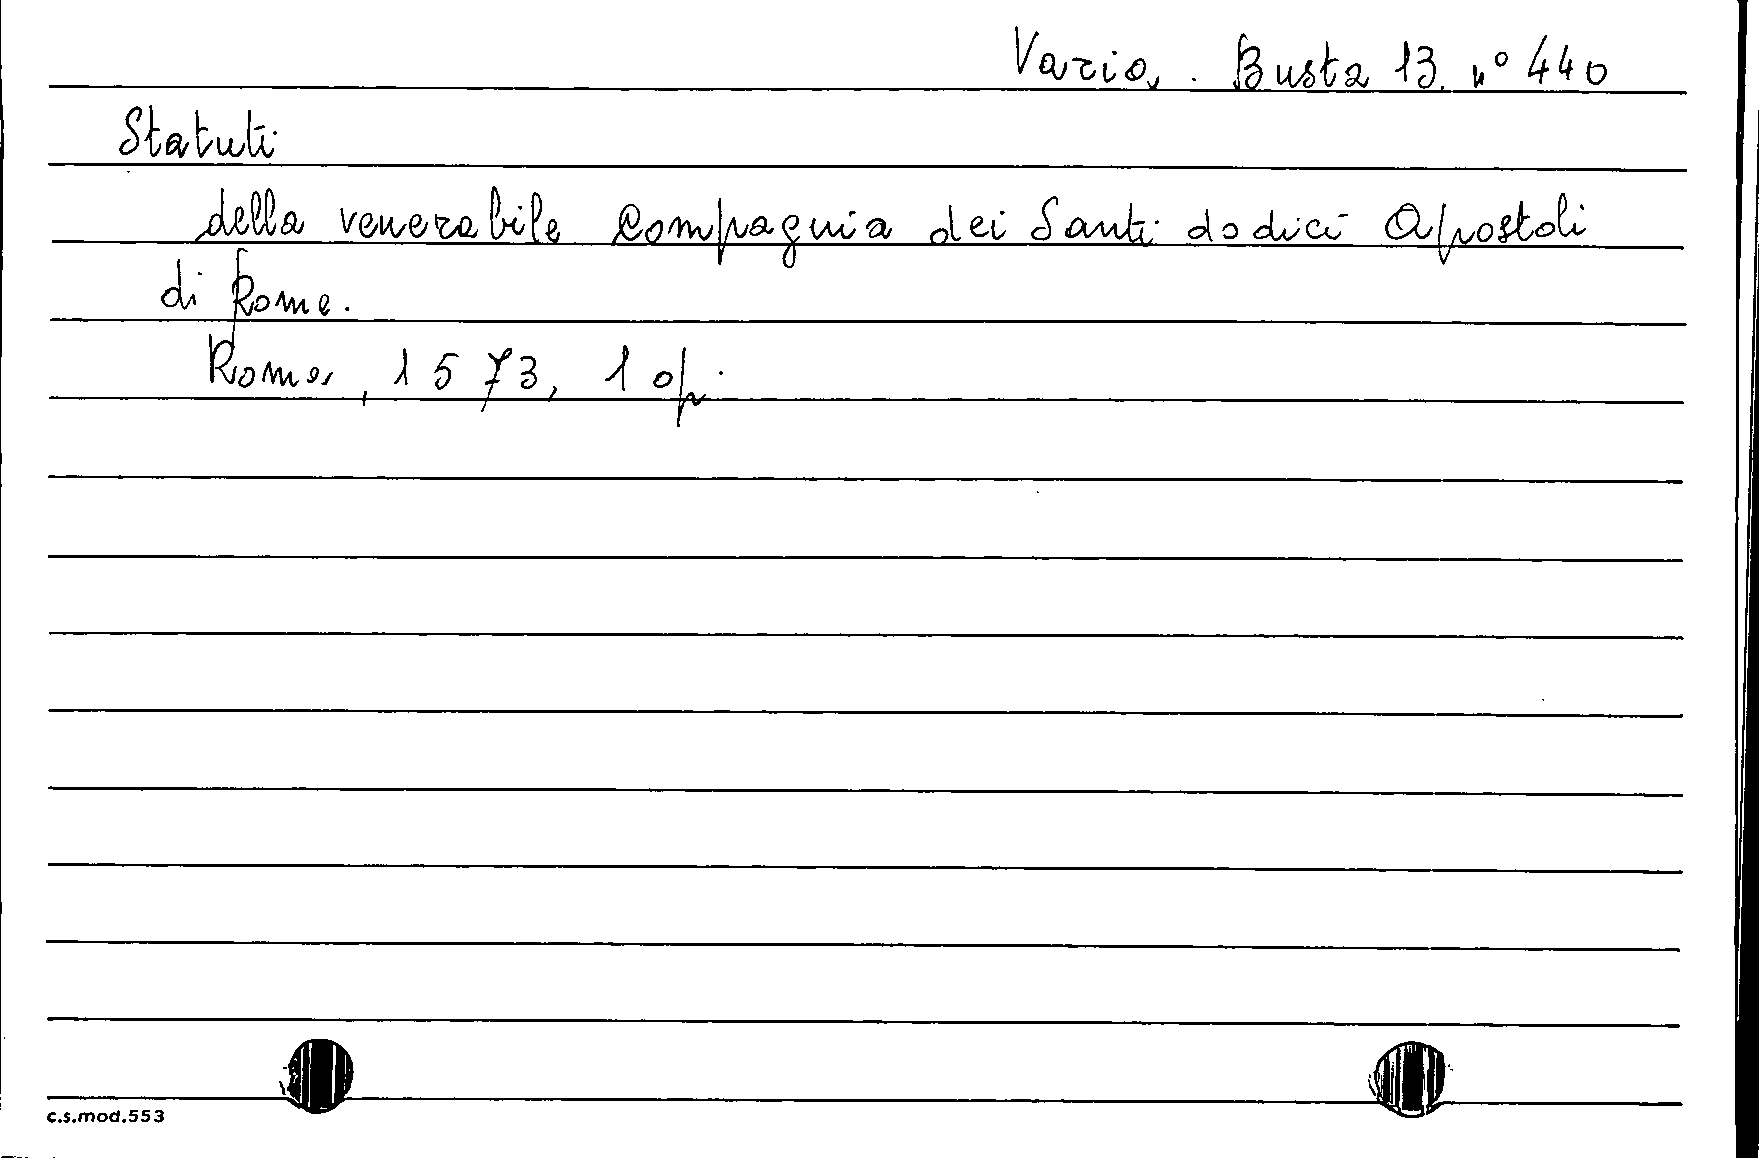 Varia. Busta 13. n° 440
Statuti
della venerabile Compagnia dei Santi dodici Apostoli
di Roma.
Roma, 1573, 1 op.
c.s.mod.553